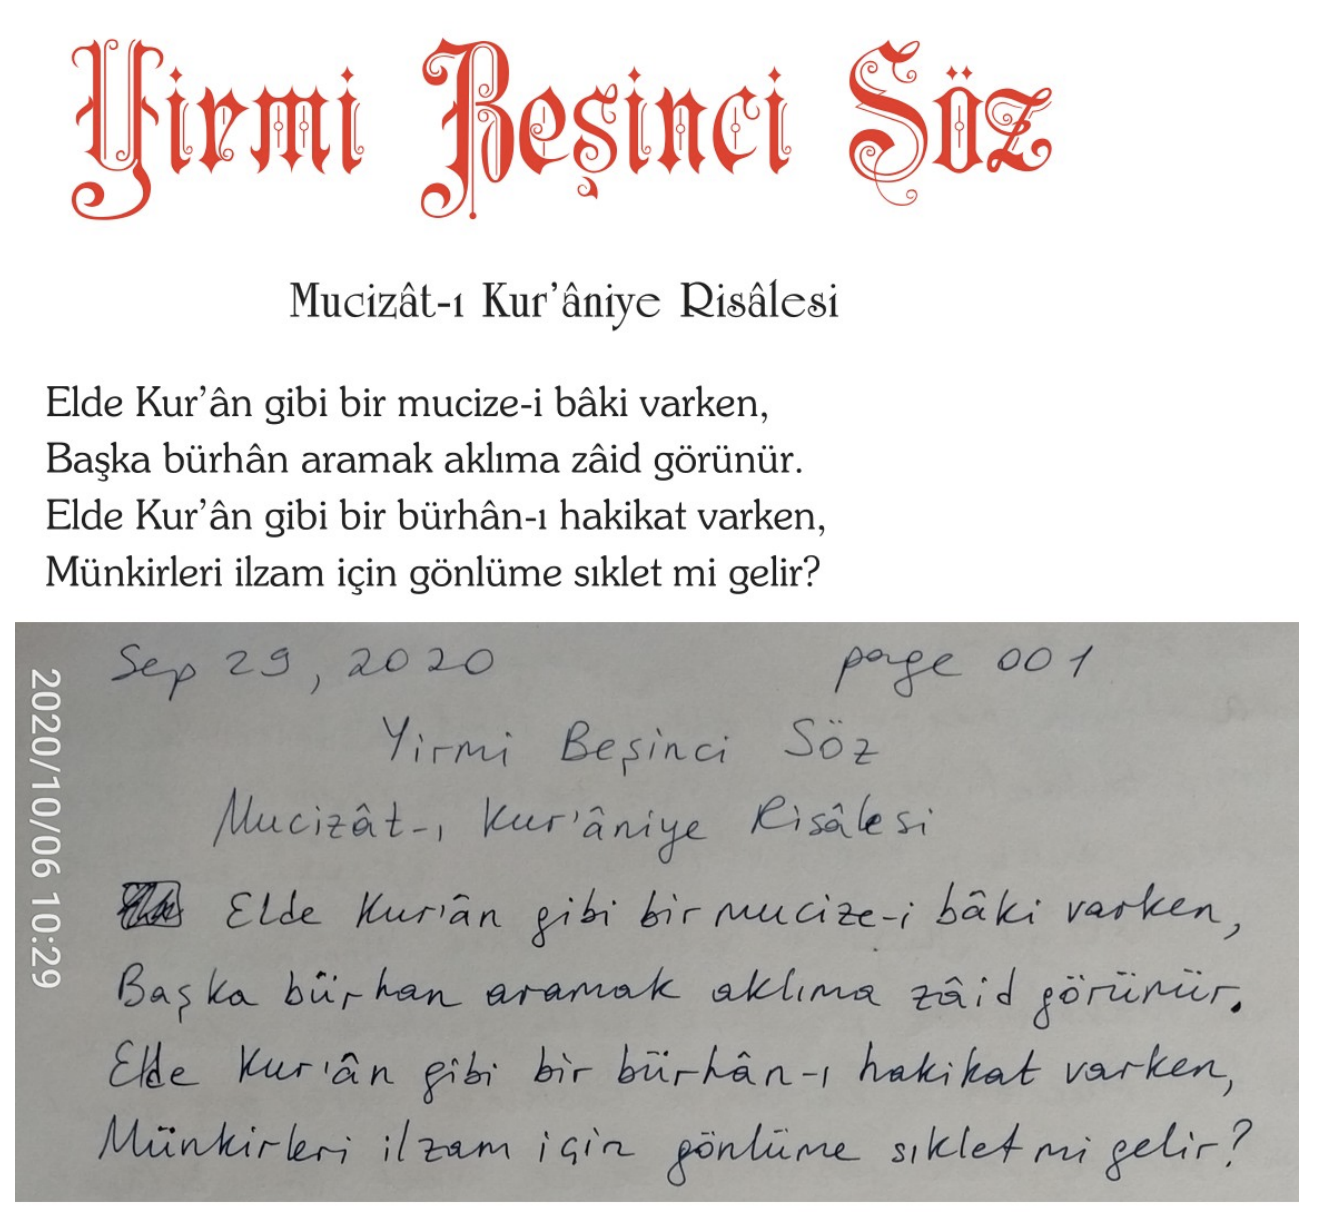 Yirmi Beşinci Söz
Mucizât-ı Kur'âniye Risâlesi
Elde Kur'ân gibi bir mucize-i bâki varken,
Başka bürhân aramak aklıma zâid görünür.
Elde Kur'ân gibi bir bürhân-ı hakikat varken,
Münkirleri ilzam için gönlüme sıklet mi gelir?
Sep 29, 2020 page 001
Yirmi Beşinci Söz
Mucizât-ı Kur'âniye Risâlesi
Elde Kur'ân gibi bir mucize-i bâki varken,
Başka bürhan aramak aklıma zâid görünür.
Elde Kur'ân gibi bir bürhân-ı hakikat varken,
Münkirleri ilzam için gönlüme sıklet mi gelir?
2020/10/06 10:29